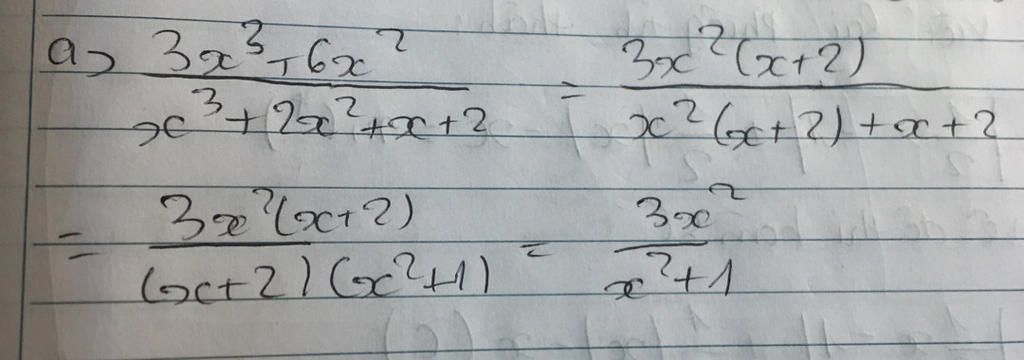 a) \frac{3x^3+6x^2}{x^3+2x^2+x+2} = \frac{3x^2(x+2)}{x^2(x+2)+x+2}
= \frac{3x^2(x+2)}{(x+2)(x^2+1)} = \frac{3x^2}{x^2+1}